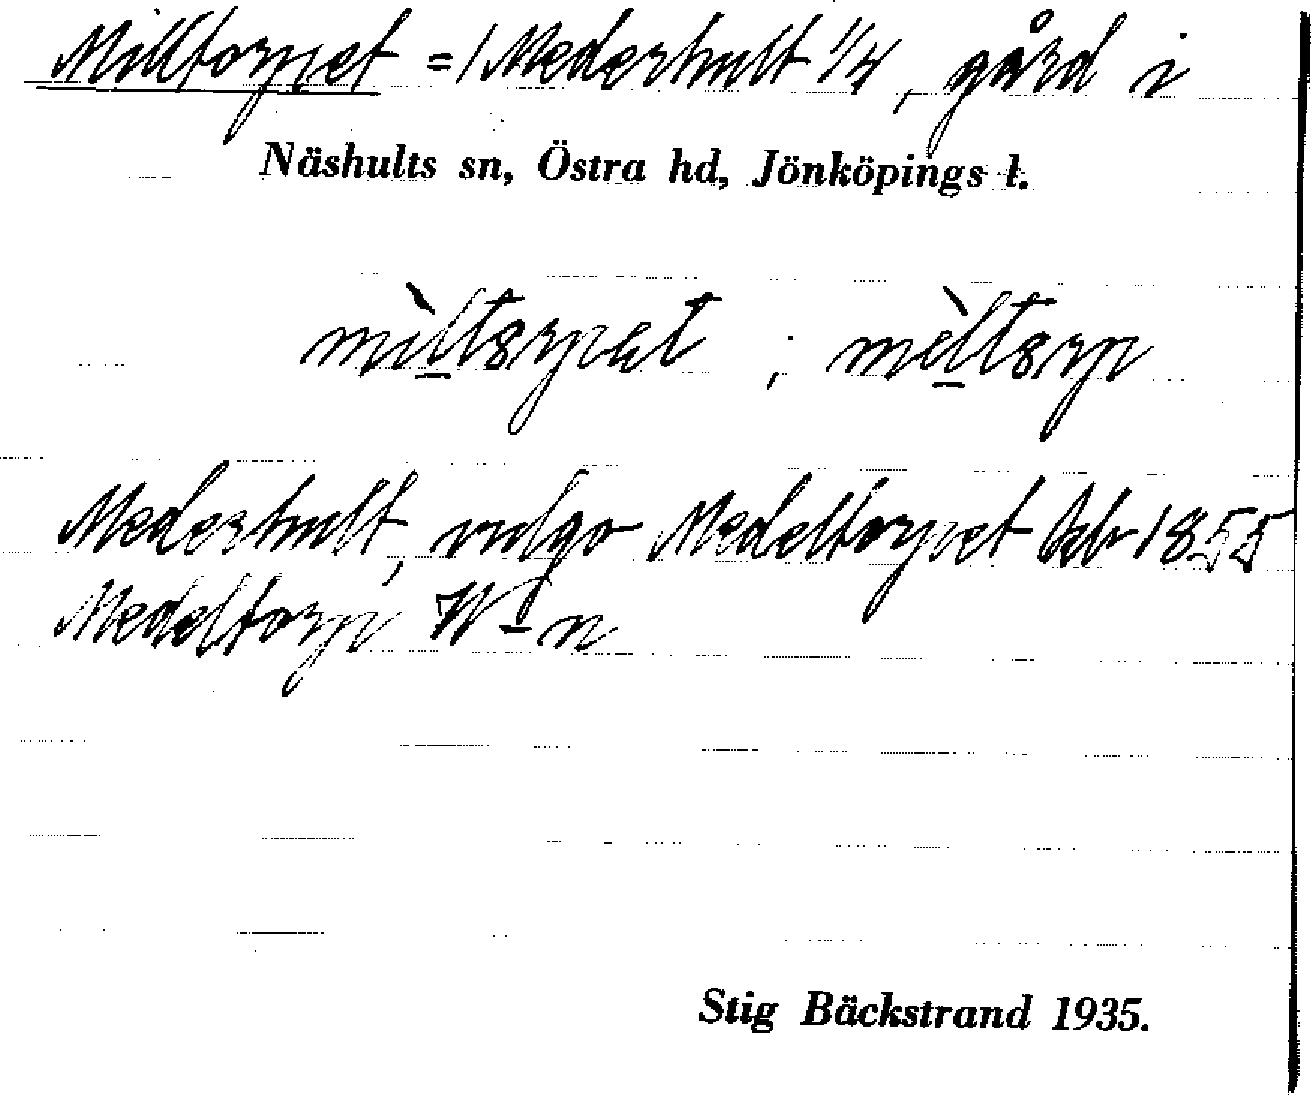 Milltorpet = / Mederhult 1/4, gård i
Näshults sn, Östra hd, Jönköpings l.
mìltsrpet ; mèltsrp
Mederhult, vulgo Medeltorpet hfb 1855
Medeltorp W-n
Stig Bäckstrand 1935.